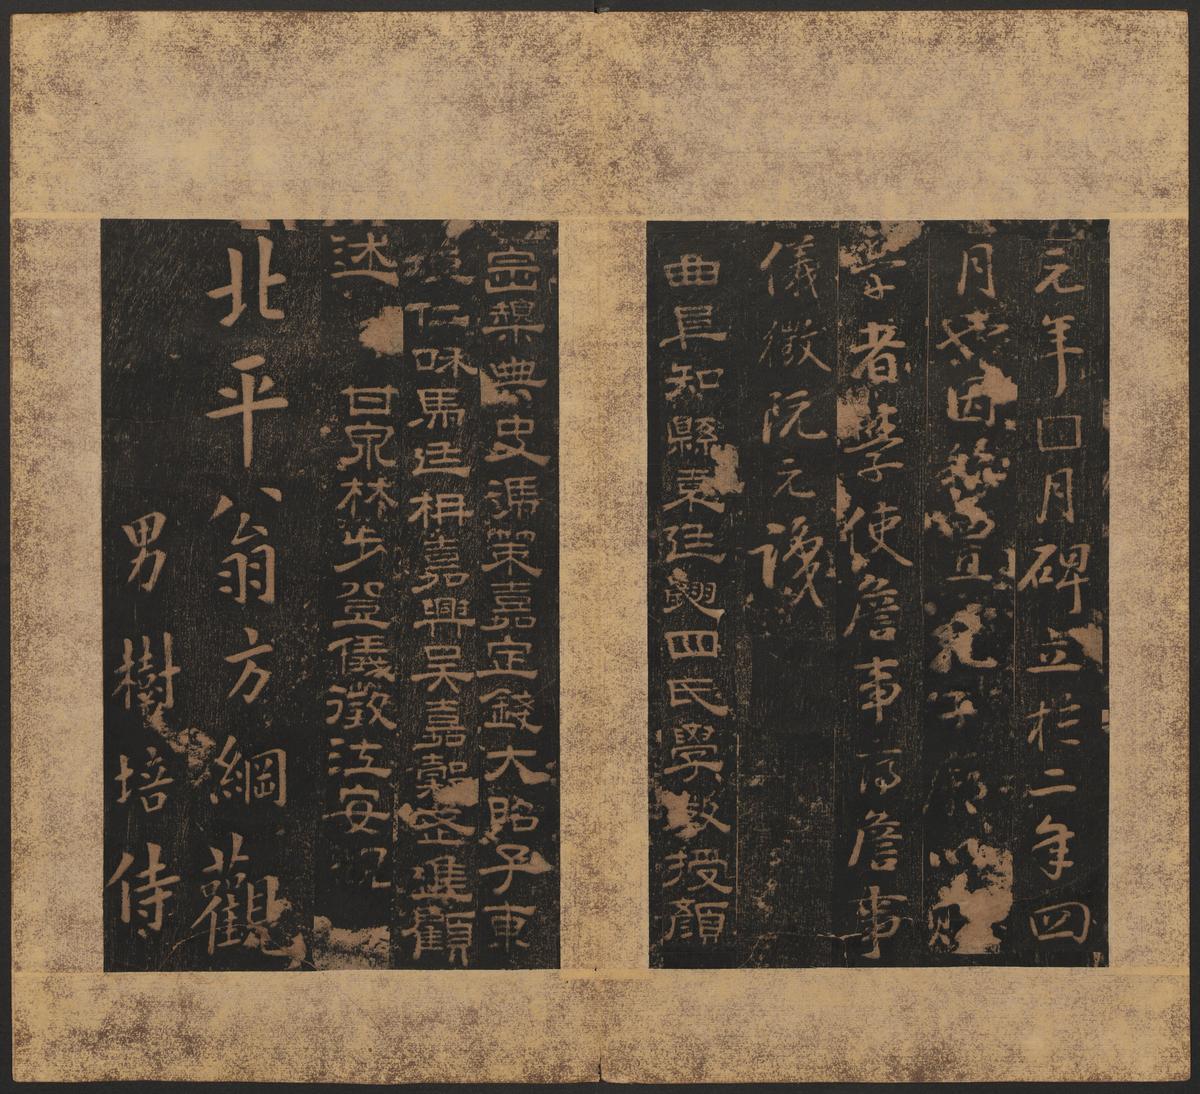 元年口月碑立於二年四
月也因 兄子 以貽
學者學使詹事 詹事
儀徵阮元識
曲阜知縣袁廷翽四氏學教授顏
崇槼典史馮策嘉定錢大昭子東
垣仁咊馬廷枏嘉興吳嘉穀 進顧
述 甘泉林步登儀徵江安觀
北平翁方綱觀
男樹培侍